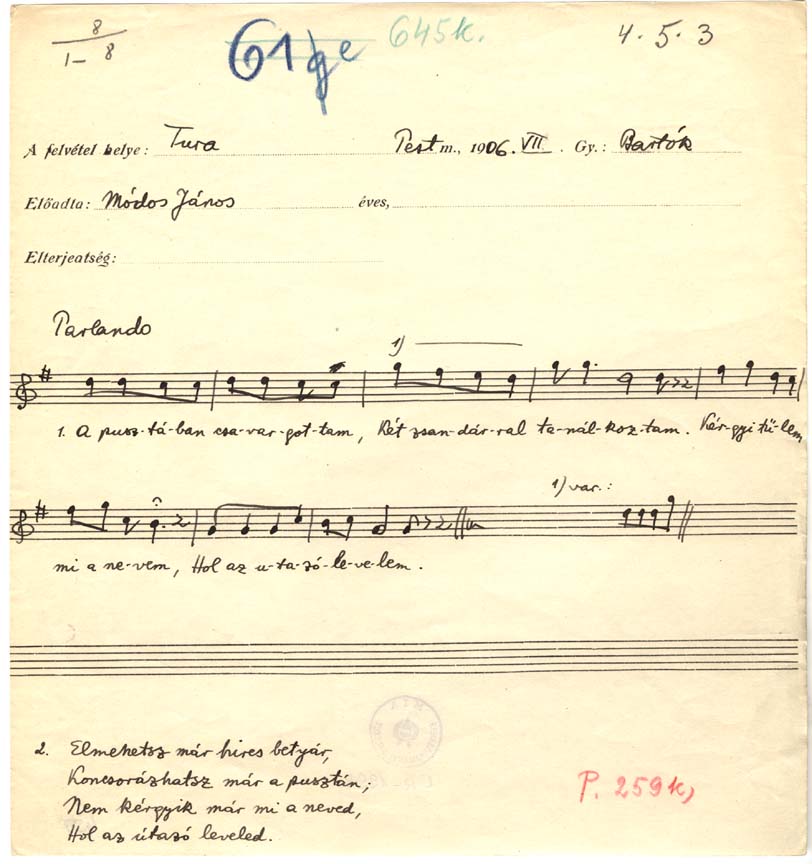 8
1-8
61 e 645k. 4.5.3
A felvétel helye: Tura Pest m., 1906. VII. Gy.: Bartók
Előadta: Módos János éves,
Elterjeatség:
Parlando
1)
1. A pusz-tá-ban csa-var-got-tam, Két zsan-dár-ral ta-nál-koz-tam. Kér-gyi tü-lem
1) var.:
mi a ne-vem, Hol az u-ta-zó-le-ve-lem.
2. Elmehetsz már hires betyár,
Koncsorázhatsz már a pusztán;
Nem kérgyik már mi a neved,
Hol az útazó leveled.
P. 259k,